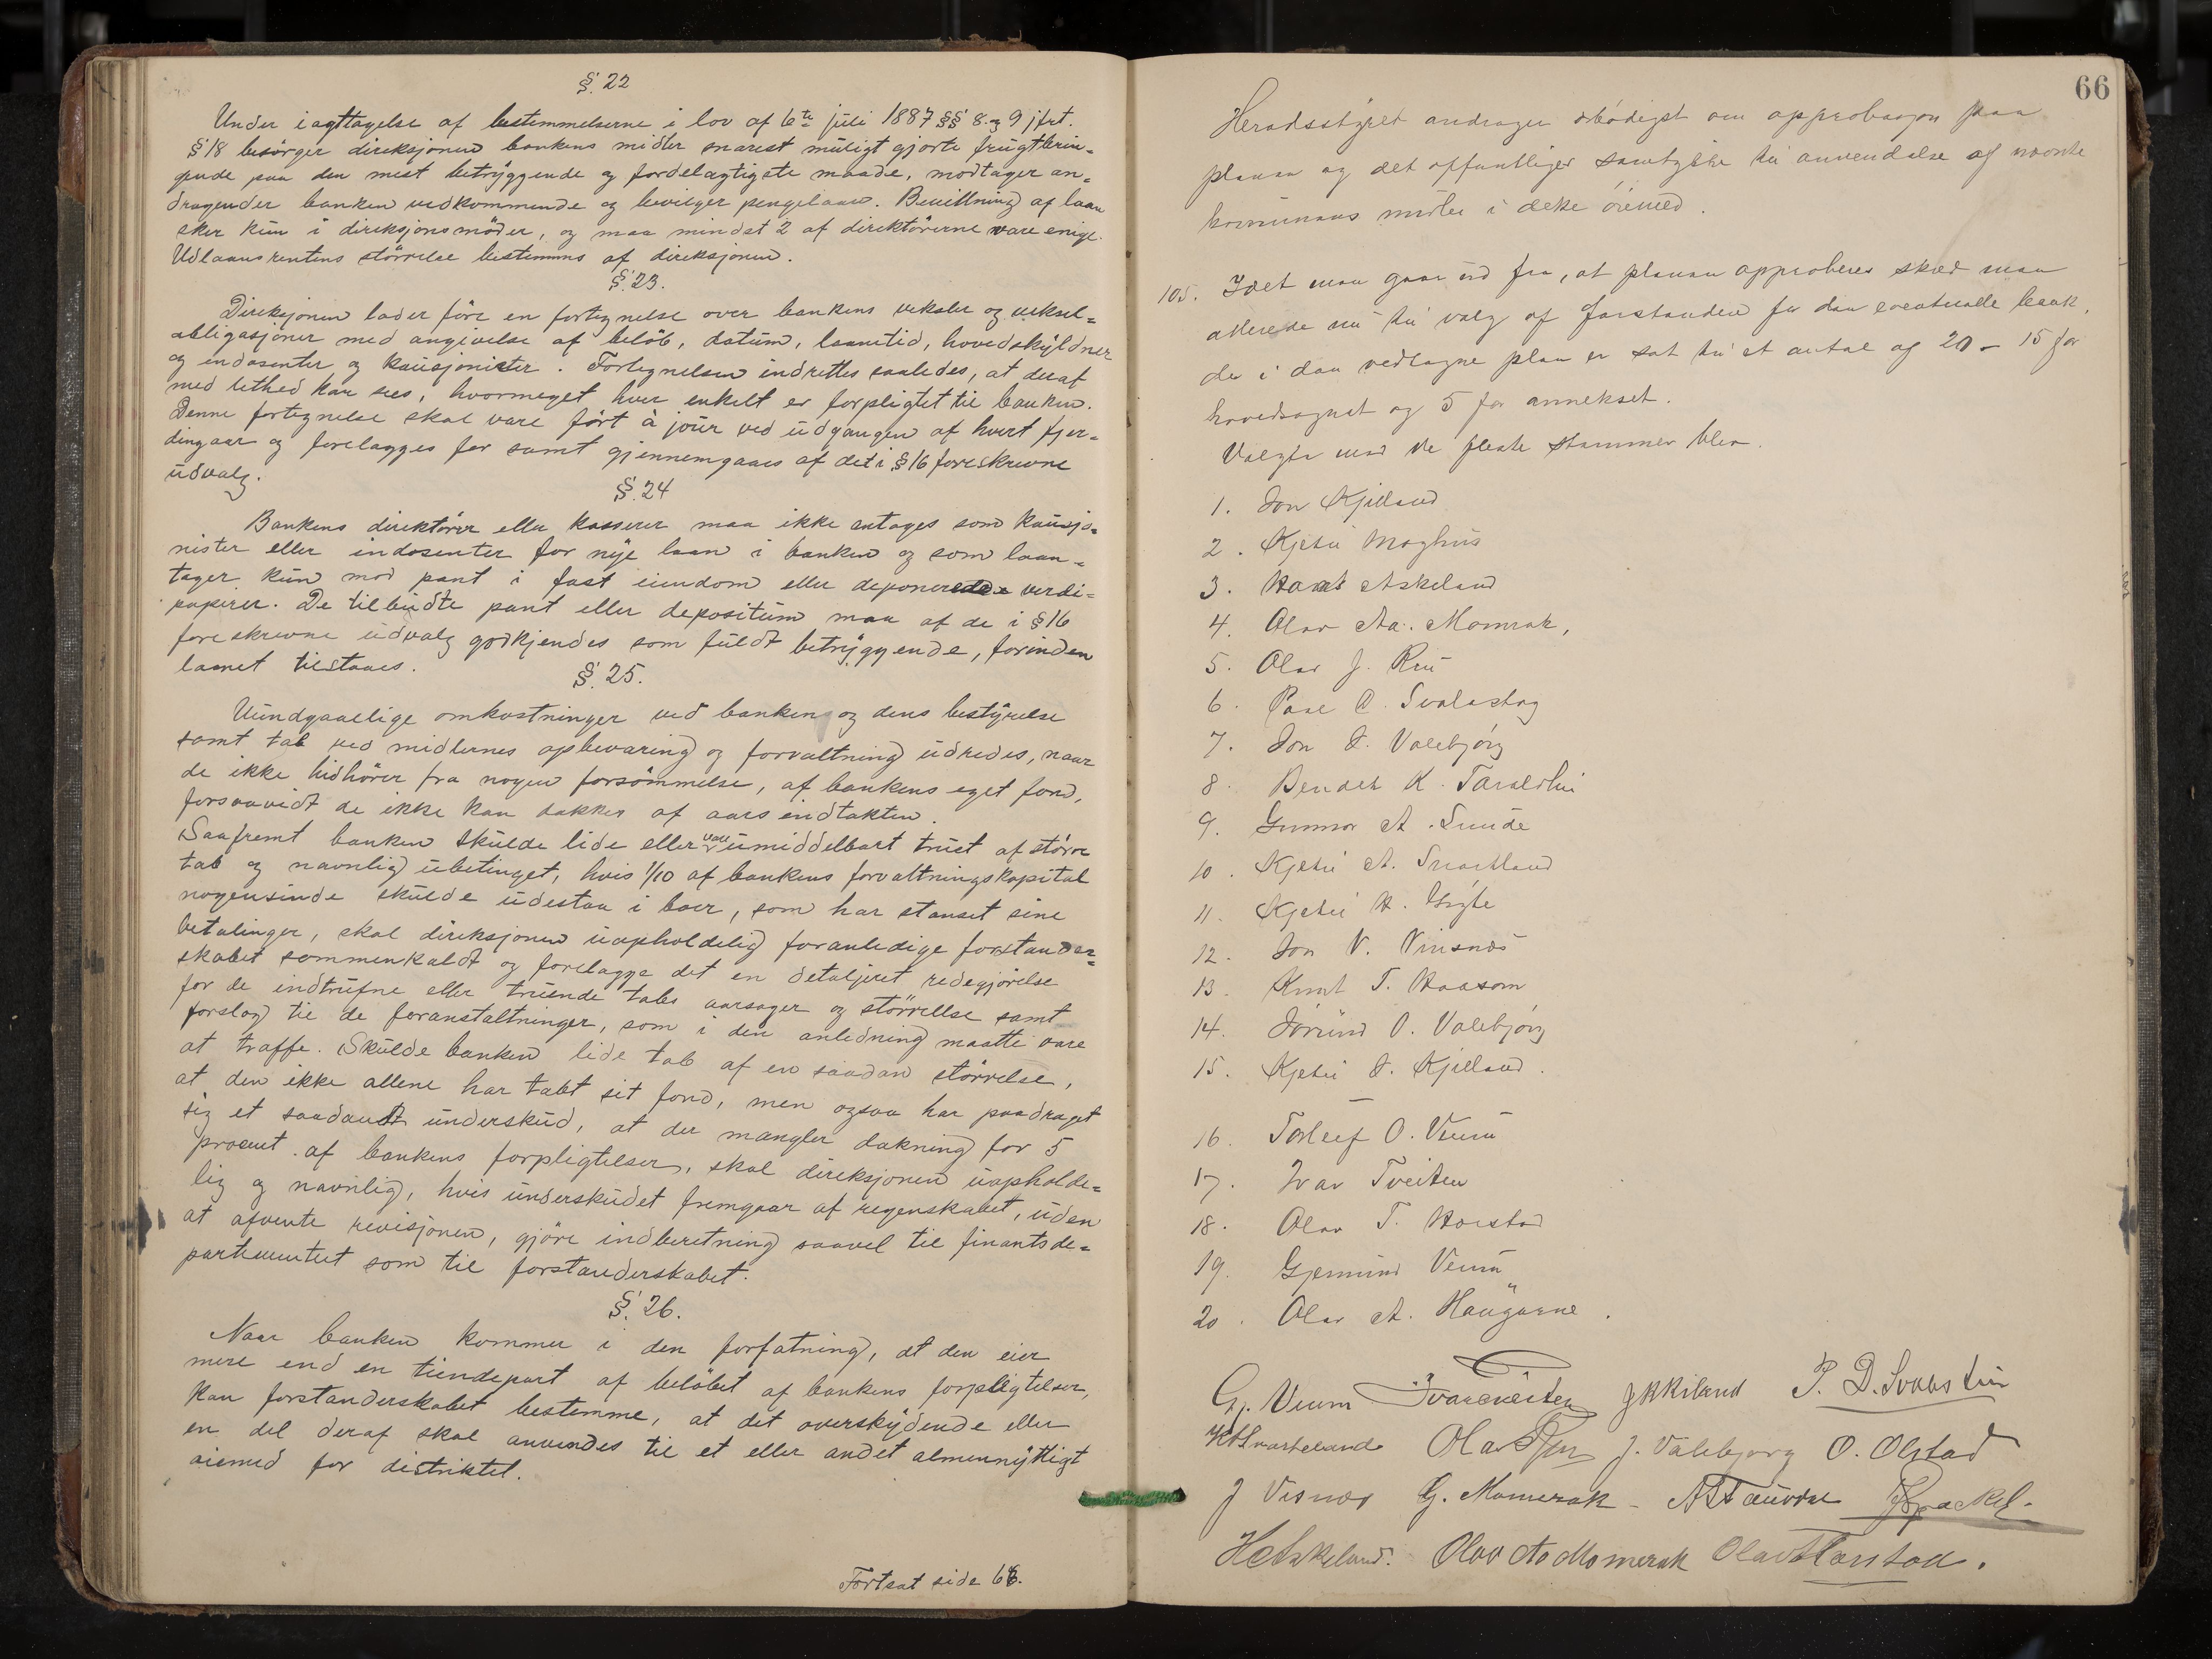 §. 22
Under iagttagelse af bestemmelserne i lov af 6te juli 1887 §§ 8 og 9 jfrt.
§ 18 besörger direksjonen bankens midler snarest muligt gjorte frugtbrin=
gende paa den mest betryggende og fordelagtigste maade, modtager an=
dragender banken vedkommende og bevilger pengelaan. Bevillning af laan
sker kun i direksjonsmöder, og maa mindst 2 af direktörerne være enige.
Udlaansrentens störrelse bestemmes af direksjonen.
§. 23.
Direksjonen lader före en fortegnelse over bankens veksler og veksel=
obligasjoner med angivelse af belöb, datum, laanetid, hovedskyldner
og endosenter og kausjonister. Fortegnelsen indrettes saaledes, at deraf
med lethed kan sees, hvormeget hver enkelt er forpligtet til banken.
Denne fortegnelse skal være fört à jour ved udgangen af hvert fjer=
dingaar og forelægges for samt gjennemgaaes af det i § 16 foreskrevne
udvalg.
§. 24
Bankens direktörer eller kasserer maa ikke antages som kausjo=
nister eller indosenter for nye laan i banken og som laan=
tager kun mod pant i fast eiendom eller deponerede verdi=
papirer. De tilbudte pant eller depositum maa af de i § 16
foreskrevne udvalg godkjendes som fuldt betryggende, forinden
laanet tilstaaes.
§. 25.
Uundgaaelige omkostninger ved banken og dens bestyrelse
samt tab ved midlernes opbevaring og forvaltning udredes, naar
de ikke hidhörer fra nogen forsömmelse, af bankens eget fond,
forsaavidt de ikke kan dækkes af aarsindtækten.
Saafremt banken skulde lide eller være umiddelbart truet af större
tab og navnlig ubetinget, hvis 1/10 af bankens forvaltningskapital
nogensinde skulde udestaa i boer, som har stanset sine
betalinger, skal direksjonen uopholdelig foranledige forstander=
skabet sammenkaldt og forelægge det en detaljeret redegjörelse
for de indtrufne eller truende tabs aarsager og störrelse samt
forslag til de foranstaltninger, som i den anledning maatte være
at træffe. Skulde banken lide tab af en saadan störrelse,
at den ikke allene har tabt sit fond, men ogsaa har paadraget
sig et saadant underskud, at der mangler dækning for 5
procent af bankens forpligtelser, skal direksjonen uopholde=
lig og navnlig, hvis underskudet fremgaar af regnskabet, uden
at afvente revisjonen, gjöre indberetning saavel til finantsde=
partementet som til forstanderskabet.
§. 26.
Naar banken kommer i den forfatning, at den eier
mere end en tiendepart af belöbet af bankens forpligtelser,
kan forstanderskabet bestemme, at det overskydende eller
en del deraf skal anvendes til et eller andet almennyttigt
öiemed for distriktet.
Fortsat side 68.
66
Heradsstyret andrager ærbödigst om approbasjon paa
planen og det offentliges samtykke til anvendelse af nævnte
kommunens midler i dette öiemed.
105. Idet man gaar ud fra, at planen approberes skred man
allerede nu til valg af forstandere for den eventuelle bank,
der i den vedtagne plan er sat til et antal af 20 - 15 for
hovedsognet og 5 for annekset.
Valgte med de fleste stemmer blev.
1. Jon Kjilland
2. Kjetil Moghus
3. Hans Askeland
4. Olav Aa. Momrak,
5. Olav J. Rui
6. Paal D. Svalastog
7. Jon J. Valebjørg
8. Bendek K. Taraldlii
9. Gunnar A. Sunde
10. Kjetil A. Snartland
11. Kjetil H. Gryte
12. Jon V. Vinsnes
13. Knut T. Haasom
14. Jörund O. Valebjörg
15. Kjetil J. Kjilland.
16. Torleif O. Veum
17. Ivar Tveiten
18. Olav T. Harstad
19. Gjermund Veum
20. Olav A. Haugarne.
Gj. Veum Ivar Tveiten J K Kiland P. D. Svalastui
Olav J Rui J. Valebjorg O. Olstad
J Visnes G. Momrak -
H Askeland. Olav Aa Momrak Olav T Harstad.